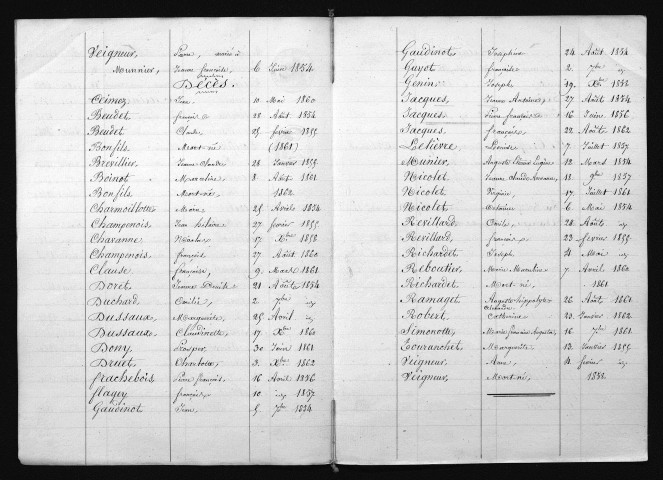 Veigneur, Pierre, marié à
Meunnier, Jeanne françoise, 6 Juin 1854.
Décès.
Ceimez Jean 10 Mai 1860
Beudet françois 28 Août 1854
Beudet Claude 25 fevrier 1855
Bonfils Mort-né (1861)
Brevillier Jeanne Claude 28 Janvier 1855
Boinot Marceline 8 Août 1861
Bonfils Mort-né, 1862
Charmoillotte Marie 25 Avril 1854
Champenois Jean hilaire 27 fevrier 1855
Chavanne Nicolas 17 Xbre 1858
Champenois françois 27 Août 1860
Clause françoise, 9 Mars 1861
Doret Jeanne Denise 21 Août 1854
Duchard Emilie 2 7bre id
Dussaux Marguerite 25 Avril id
Dussaux Claudinette 17 Xbre 1860
Dony Prosper 30 Juin 1861
Druet Charlotte 3 Xbre 1862
frachebois Pierre françois 16 Avril 1856
flagey françois 10 id 1857
Gaudinot Jean 5 7bre 1854
Gaudinot Joséphine 24 Août 1854
Guyot françoise 2 7bre id
Génin Joseph 19 Xbre 1858
Jacques Jeanne 27 Août 1854
Jacques Pierre françois 16 Juin 1856
Jacques françoise 22 Août 1862
Lelièvre Denise 7 Juillet 1857
Munier Auguste Eugène 12 Mars 1854
Nicolet Jeanne Claude 13 9bre 1857
Nicolet Virginie 17 Juillet 1861
Nicolet Octavine 6 Mai 1854
Revillard Emilie 28 Août id
Revillard françois 23 fevrier 1855
Richardet Joseph 4 Mai id
Reboutier Marie 7 Avril 1860
Richardet Mort-né 1861
Ramaget Auguste hippolyte 26 Août 1861
Robert Catherine 23 Janvier 1862
Simonotte Marie 16 7bre 1861
Touranchet Marguerite 13 Janvier 1855
Veigneur Anne 4 fevrier id
Veigneur, Mort-né, 1858